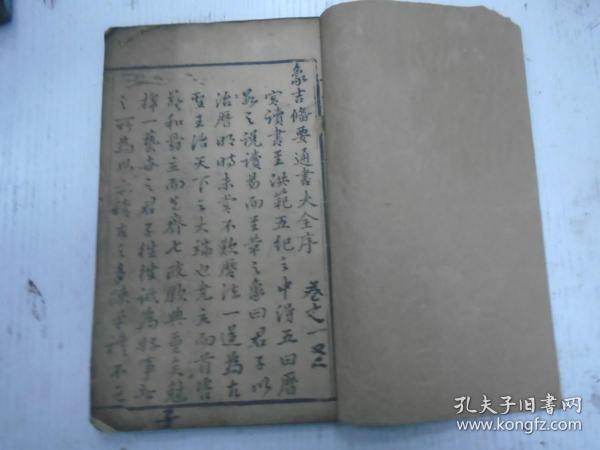 象吉備要通書大全序
卷之一又二
嘗讀書至洪範五紀之中得五曰曆
數之說讀易而至革之象曰君子以
治曆明時未嘗不歎曆法一道為古
聖王治天下之大端也堯立而首咨
羲和舜立而先齊七政歟典重矣
擇一藝古之君子往往試為
之所為以
子
孔夫子旧书网
www.kongfz.com